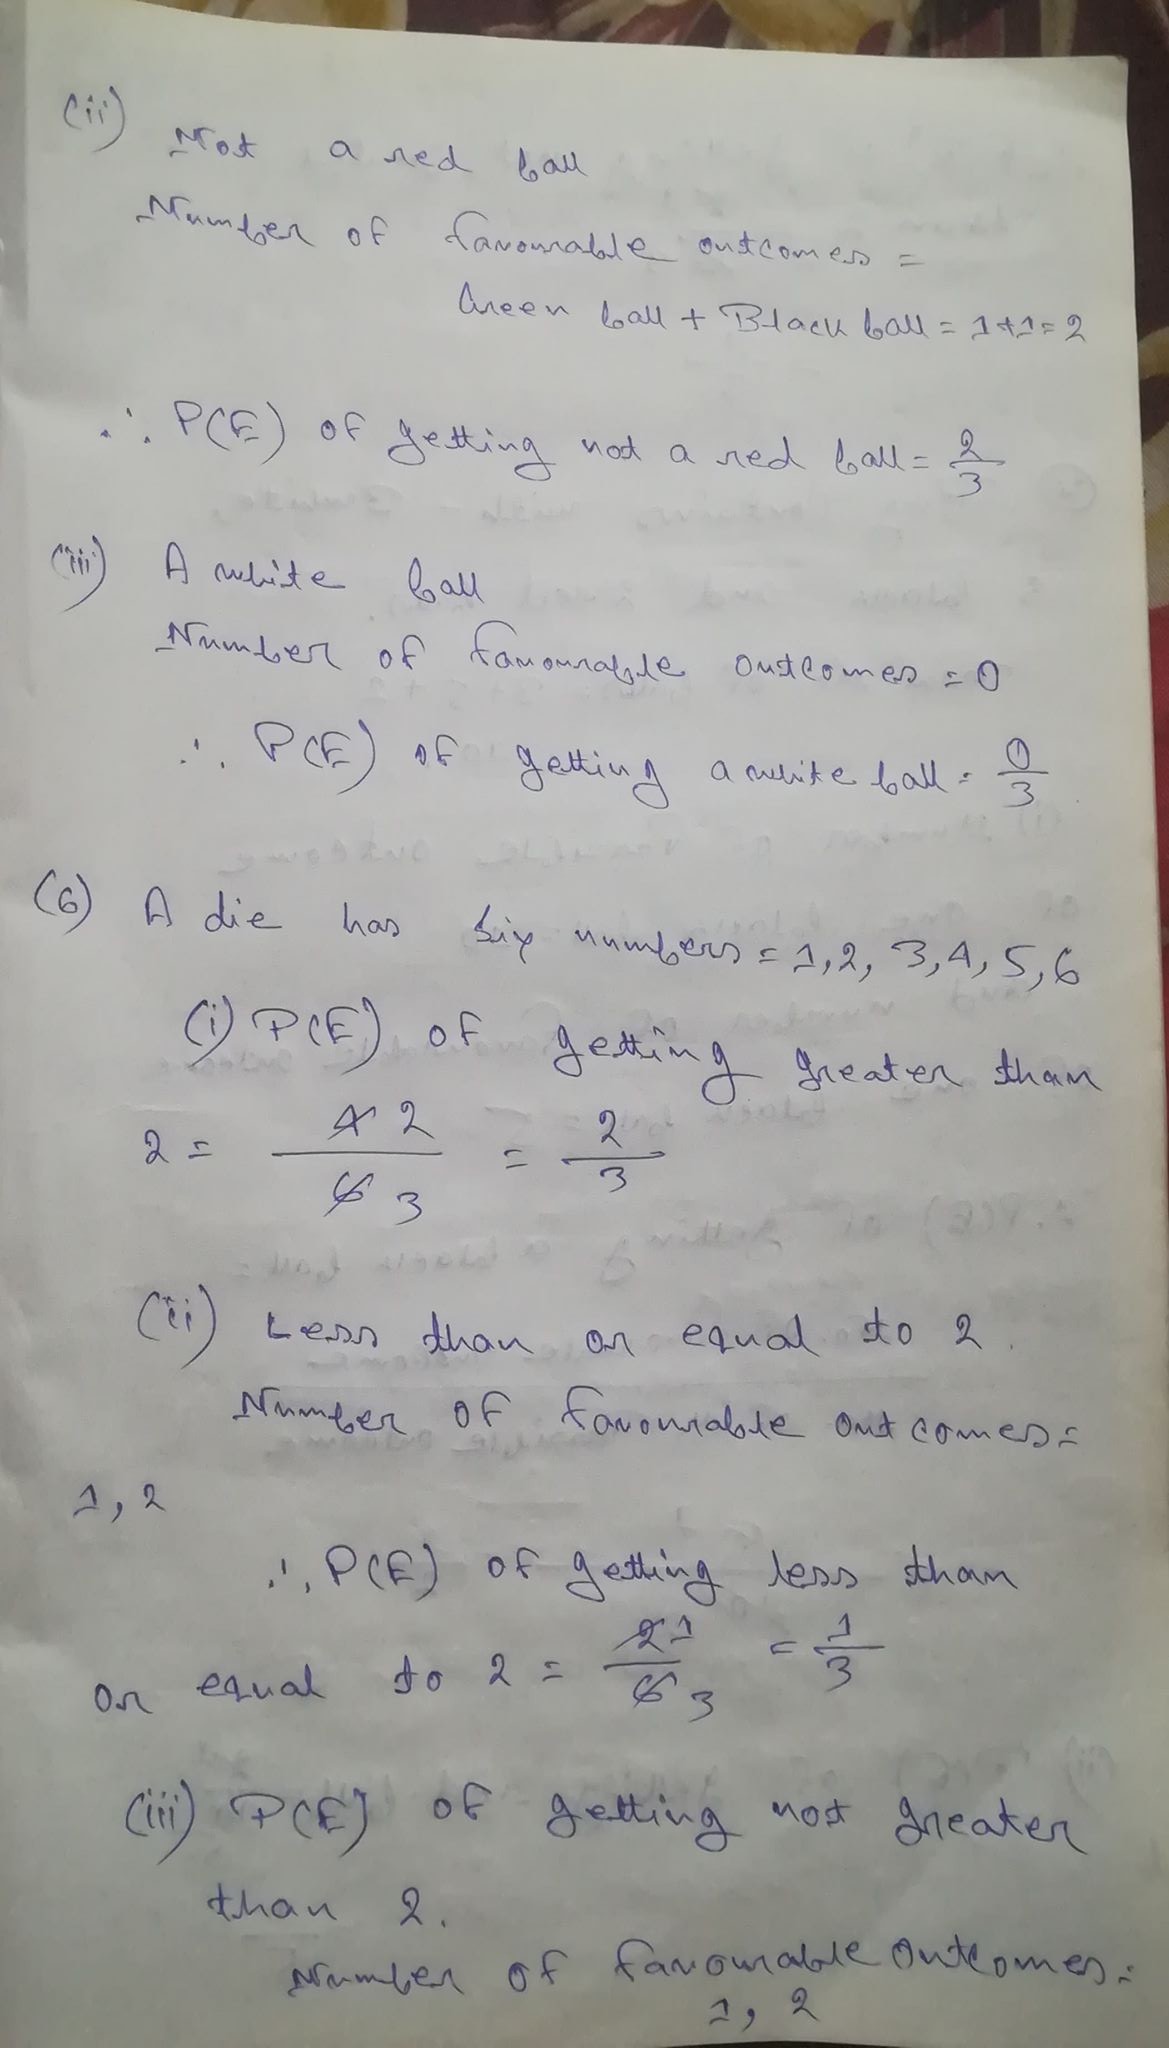 (ii) Not a red ball
Number of favourable outcomes =
Green ball + Black ball = 1+1=2
∴ P(E) of getting not a red ball = 2/3
(iii) A white ball
Number of favourable outcomes = 0
∴ P(E) of getting a white ball = 0/3
(6) A die has six numbers = 1,2, 3,4, 5,6
(i) P(E) of getting greater than
2 = 4 2 / 6 3 = 2/3
(ii) Less than or equal to 2.
Number of favourable outcomes =
1, 2
∴ P(E) of getting less than
or equal to 2 = 2 1 / 6 3 = 1/3
(iii) P(E) of getting not greater
than 2.
Number of favourable outcomes =
1, 2